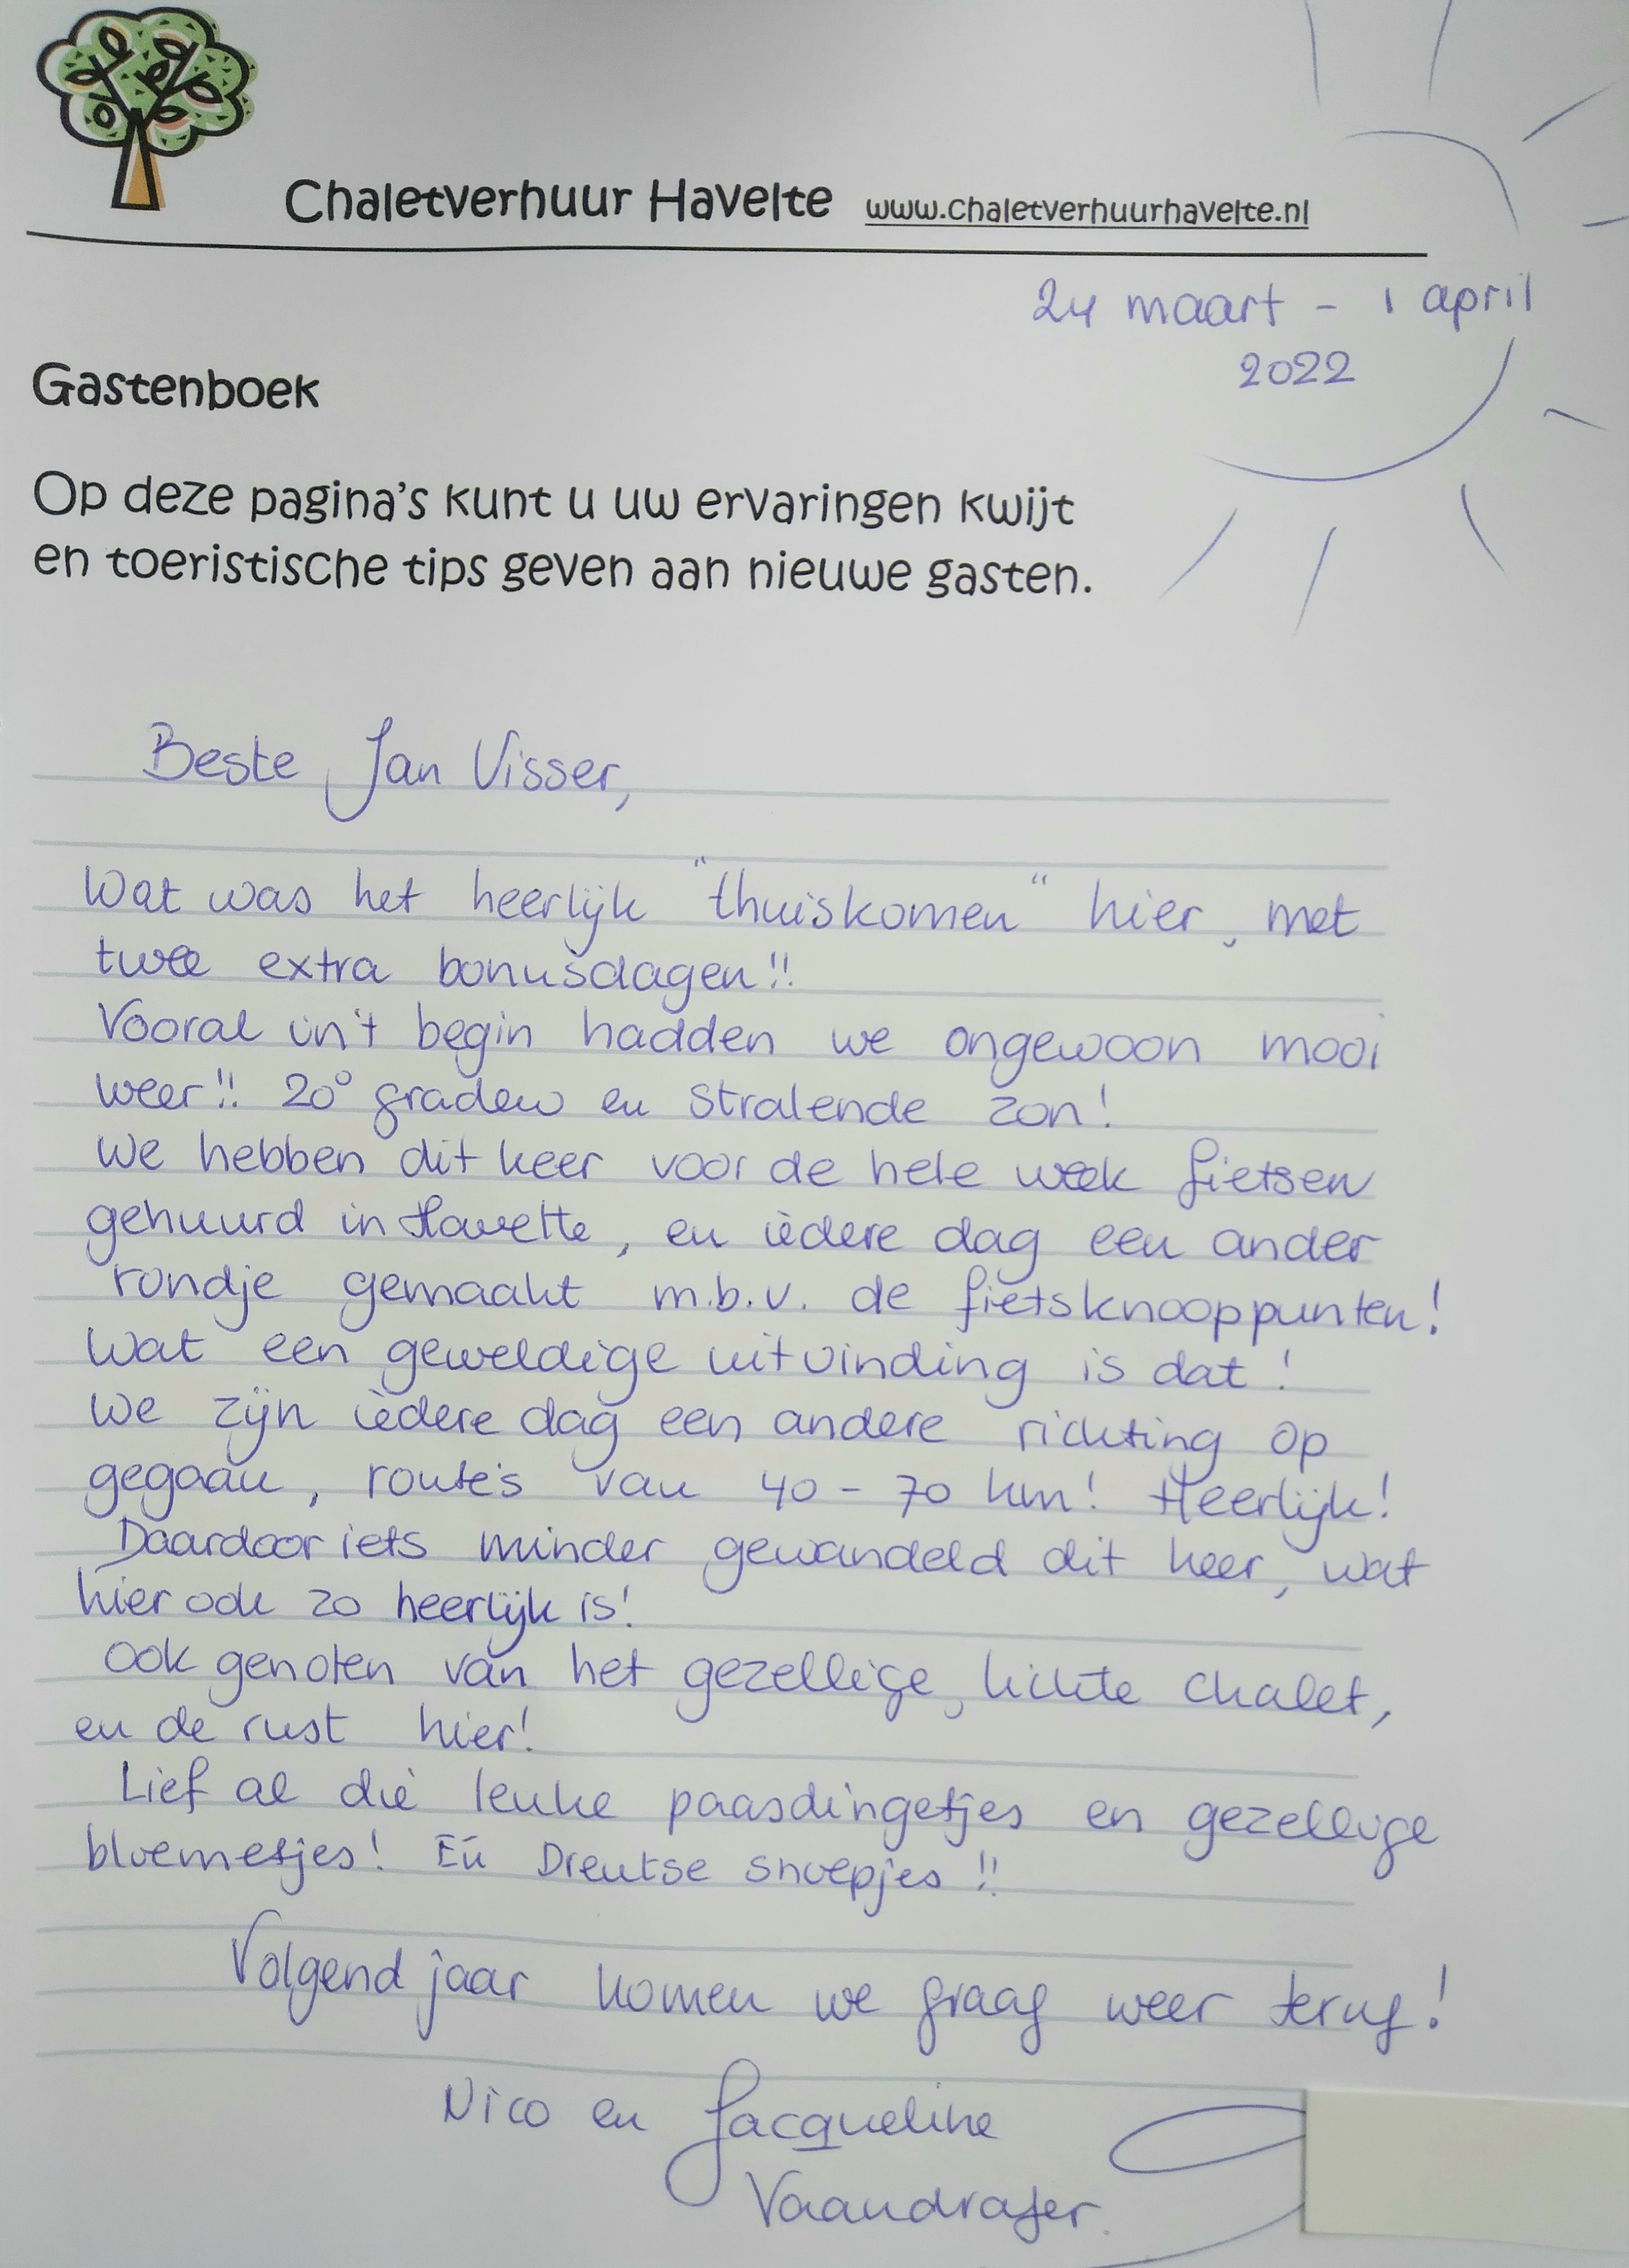 Chaletverhuur Havelte www.chaletverhuurhavelte.nl
24 maart - 1 april
2022
Gastenboek
Op deze pagina's kunt u uw ervaringen kwijt
en toeristische tips geven aan nieuwe gasten.
Beste Jan Visser,
Wat was het heerlijk "thuiskomen" hier, met
twee extra bonusdagen!!
Vooral in't begin hadden we ongewoon mooi
weer!! 20° graden en stralende zon!
We hebben dit keer voor de hele week fietsen
gehuurd in Havelte, en iedere dag een ander
rondje gemaakt m.b.v. de fietsknooppunten!
Wat een geweldige uitvinding is dat!
We zijn iedere dag een andere richting op
gegaan, route's van 40 - 70 km! Heerlijk!
Daardoor iets minder gewandeld dit keer, wat
hier ook zo heerlijk is!
Ook genoten van het gezellige, lichte chalet,
en de rust hier!
Lief al die leuke paasdingetjes en gezellige
bloemetjes! Eń Drentse snoepjes!!
Volgend jaar komen we graag weer terug!
Nico en Jacqueline
Vaandrager.